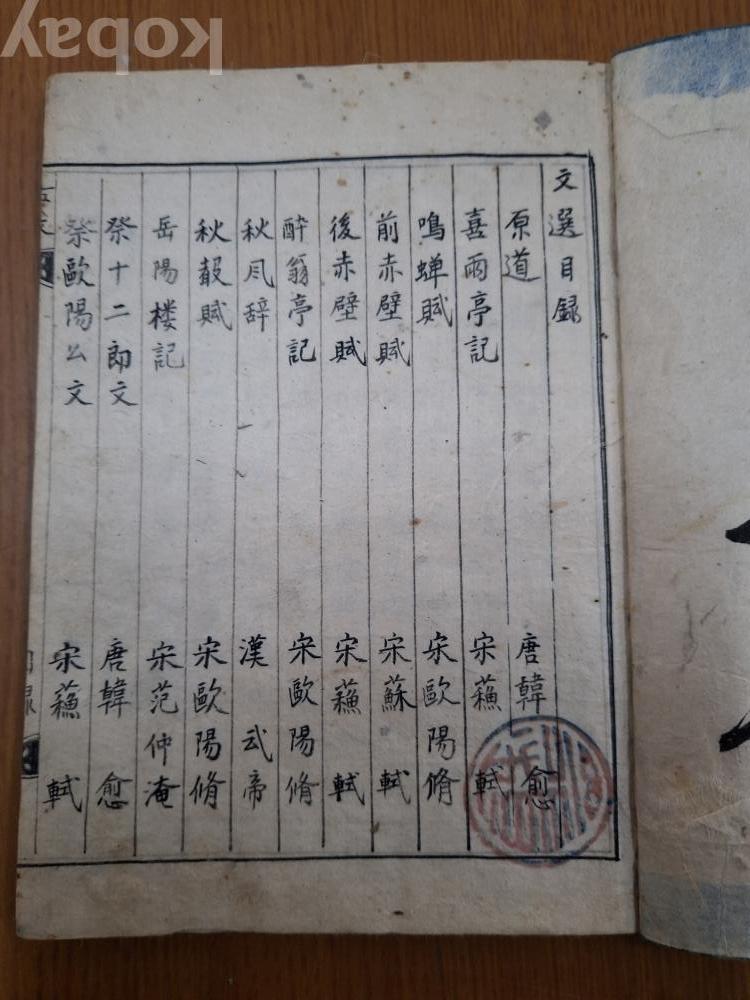 kobay
文選目録
原道 唐韓愈
喜雨亭記 宋蘓軾
鳴蝉賦 宋歐陽脩
前赤壁賦 宋蘇軾
後赤壁賦 宋蘓軾
醉翁亭記 宋歐陽脩
秋風辞 漢武帝
秋聲賦 宋歐陽脩
岳陽楼記 宋范仲淹
祭十二郎文 唐韓愈
祭歐陽公文 宋蘓軾